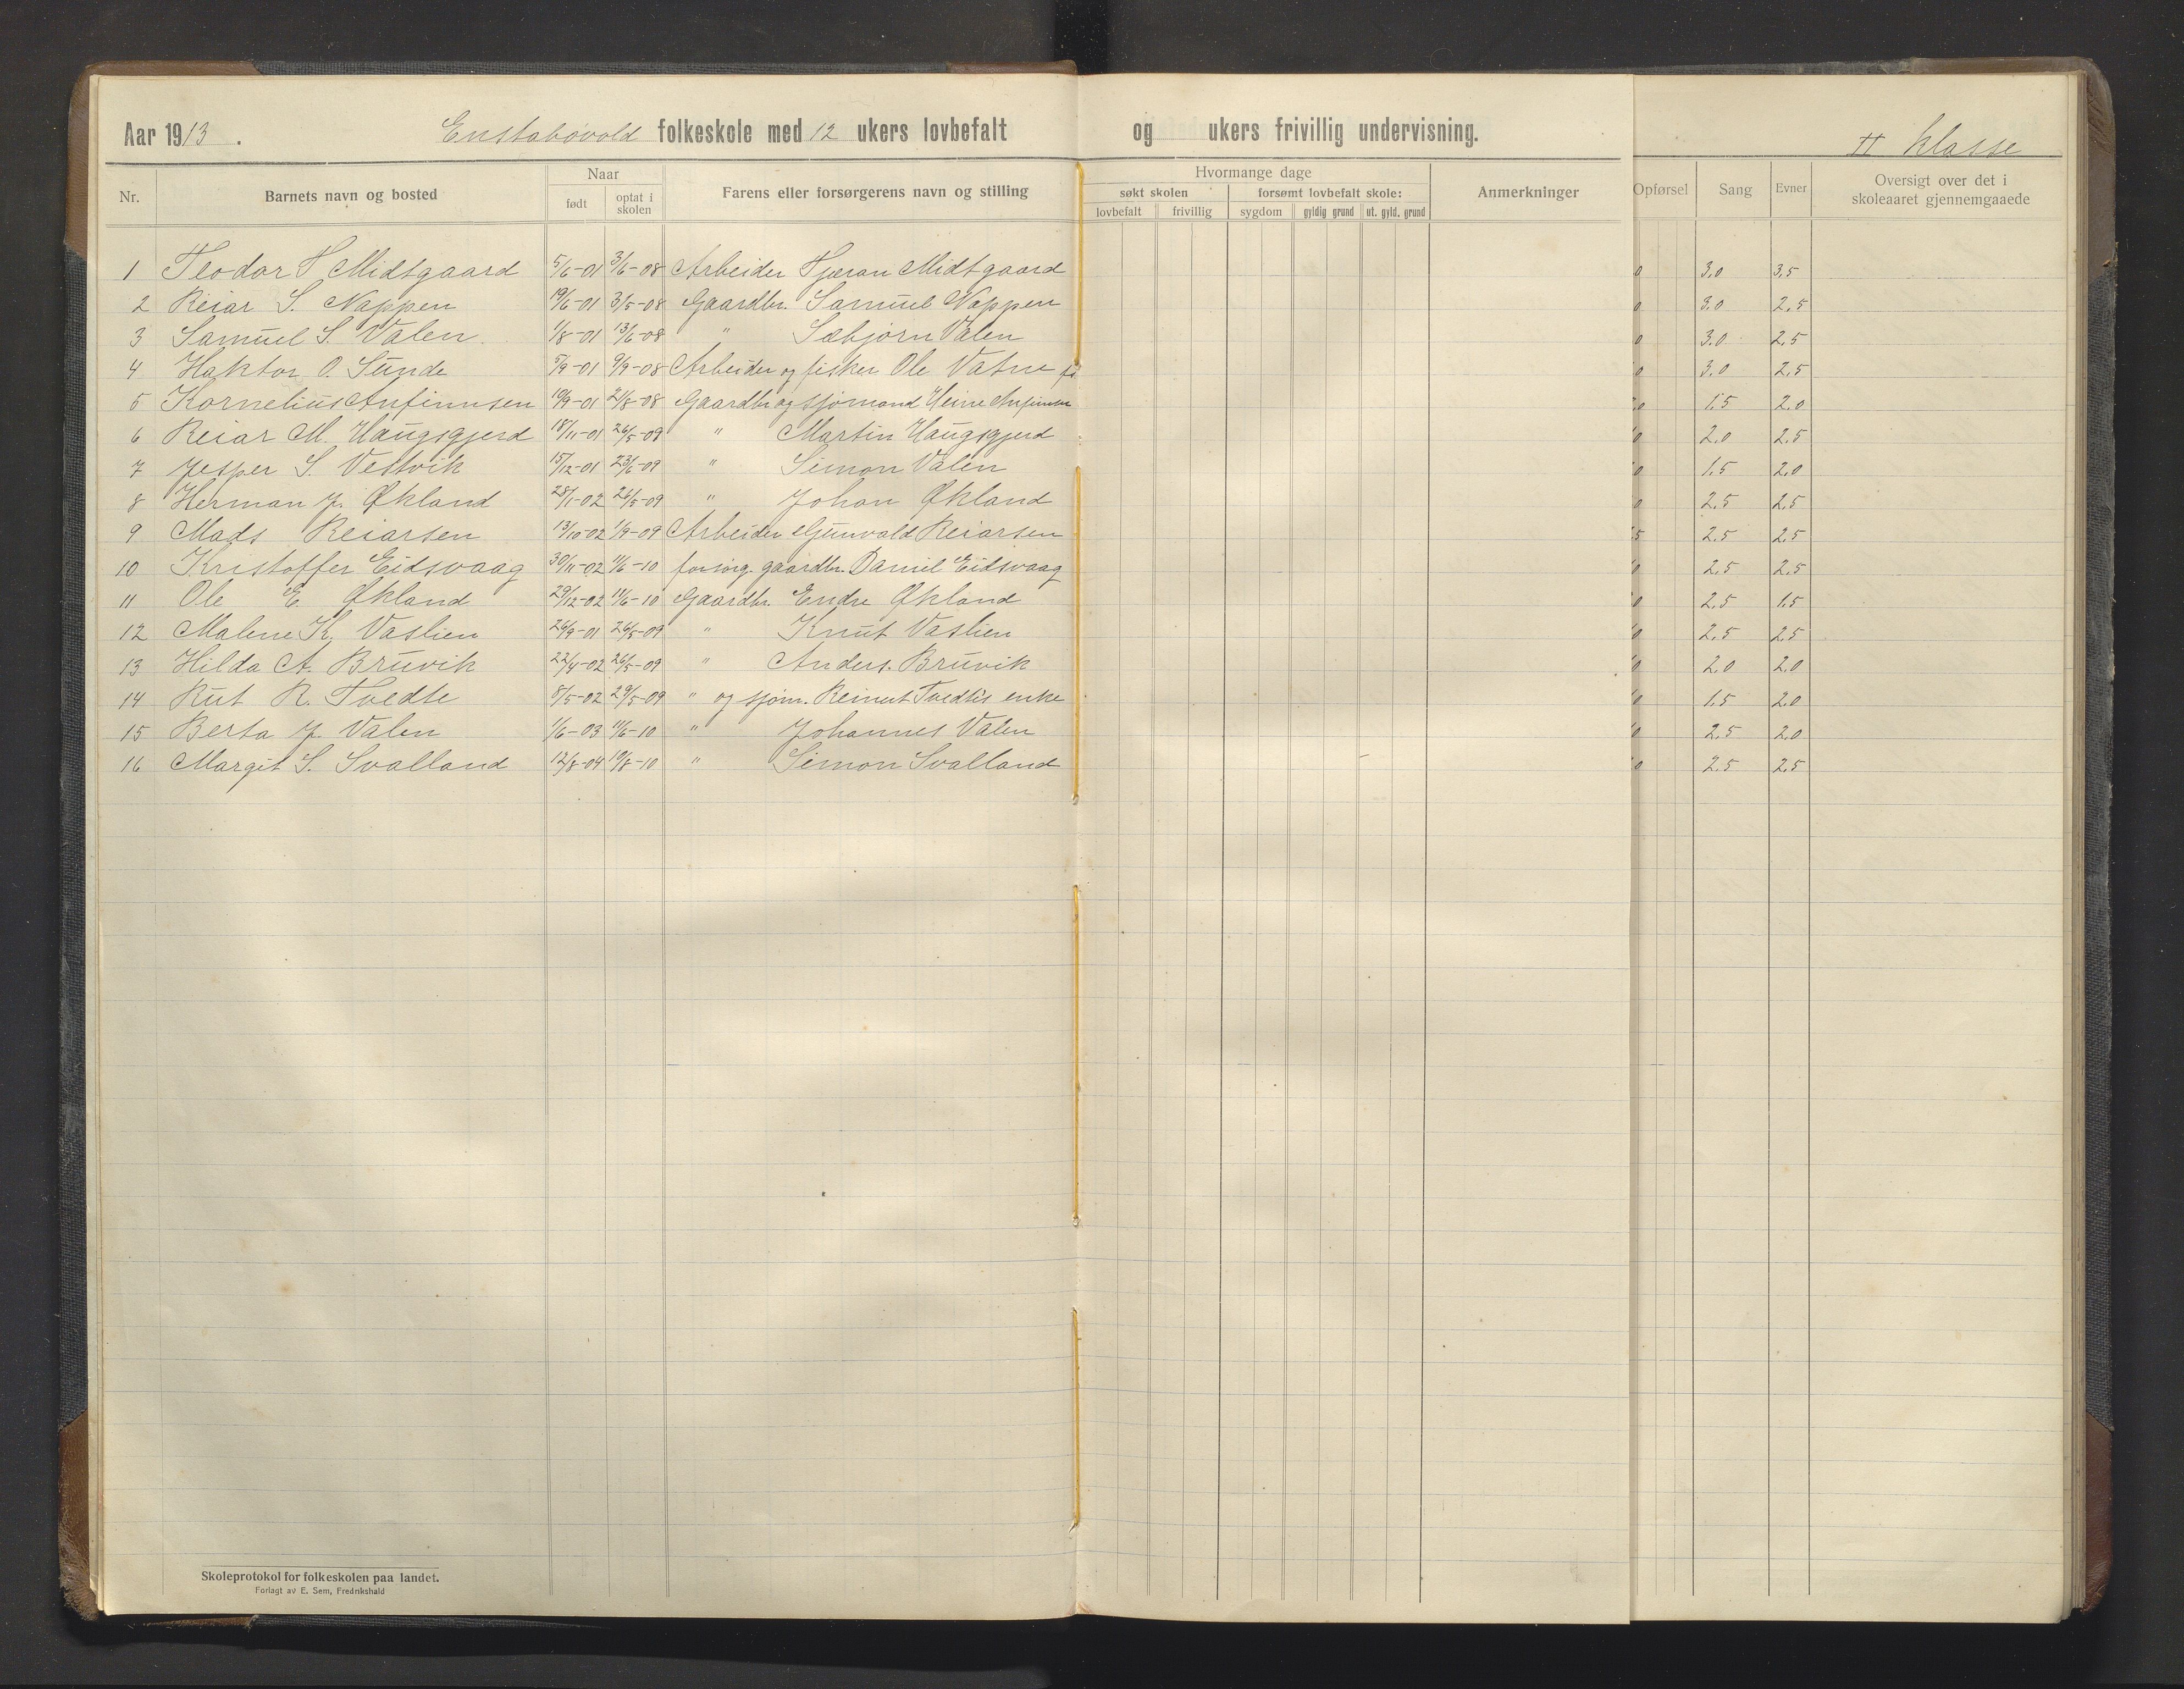 Aar 1913. Enstabøvold folkeskole med 12 ukers lovbefalt og ukers frivillig undervisning.
II klasse
Nr. Barnets navn og bosted Naar født optat i skolen Farens eller forsørgerens navn og stilling Hvormange dage søkt skolen lovbefalt frivillig forsømt lovbefalt skole: sygdom gyldig grund ut. gyld. grund Anmerkninger Opførsel Sang Evner Oversigt over det i skoleaaret gjennemgaaede
1 Teodor T Midtgaard 5/6-01 3/6-08 Arbeider Tjeran Midtgaard 0 3,0 3,5
2 Reiar S. Nappen 19/6-01 3/5-08 Gaardbr. Samuel Nappen 0 3,0 2,5
3 Samuel S. Valen 1/8-01 13/6-08 " Sæbjørn Valen 0 3,0 2,5
4 Haktor O. Sunde 5/9-01 9/9-08 Arbeider og fisker Ole Vatne 0 3,0 2,5
5 Kornelius Anfinnsen 19/9-01 21/8-08 Gaardbr og sjømand Heine Anfinnsen 0 1,5 2,0
6 Reiar M. Haugsgjerd 18/11-01 26/5-09 " Martin Haugsgjerd 0 2,0 2,5
7 Jesper S. Vestvik 15/12-01 23/6-09 " Simon Valen 0 1,5 2,0
8 Herman J. Økland 28/1-02 26/5-09 " Johan Økland 0 2,5 2,5
9 Mads Reiarsen 13/10-02 1/9-09 Arbeider Gunvald Reiarsen 5 2,5 2,5
10 Kristoffer Eidsvaag 30/11-02 11/6-10 forsørg. gaardbr. Daniel Eidsvaag 0 2,5 2,5
11 Ole E. Økland 29/12-02 11/6-10 Gaardbr. Endre Økland 0 2,5 1,5
12 Malene K. Vaslien 26/9-01 26/5-09 " Knut Vaslien 0 2,5 2,5
13 Hilda A. Bruvik 22/4-02 26/5-09 " Anders. Bruvik 0 2,0 2,0
14 Rut R. Tvedte 8/5-02 29/5-09 " og sjøm. Reinert Tvedtes enke 0 1,5 2,0
15 Berta J. Valen 1/6-03 11/6-10 " Johannes Valen 0 2,5 2,0
16 Margit S. Svalland 12/8-04 19/8-10 " Simon Svalland 0 2,5 2,5
Skoleprotokol for folkeskolen paa landet.
Forlagt av E. Sem, Fredrikshald